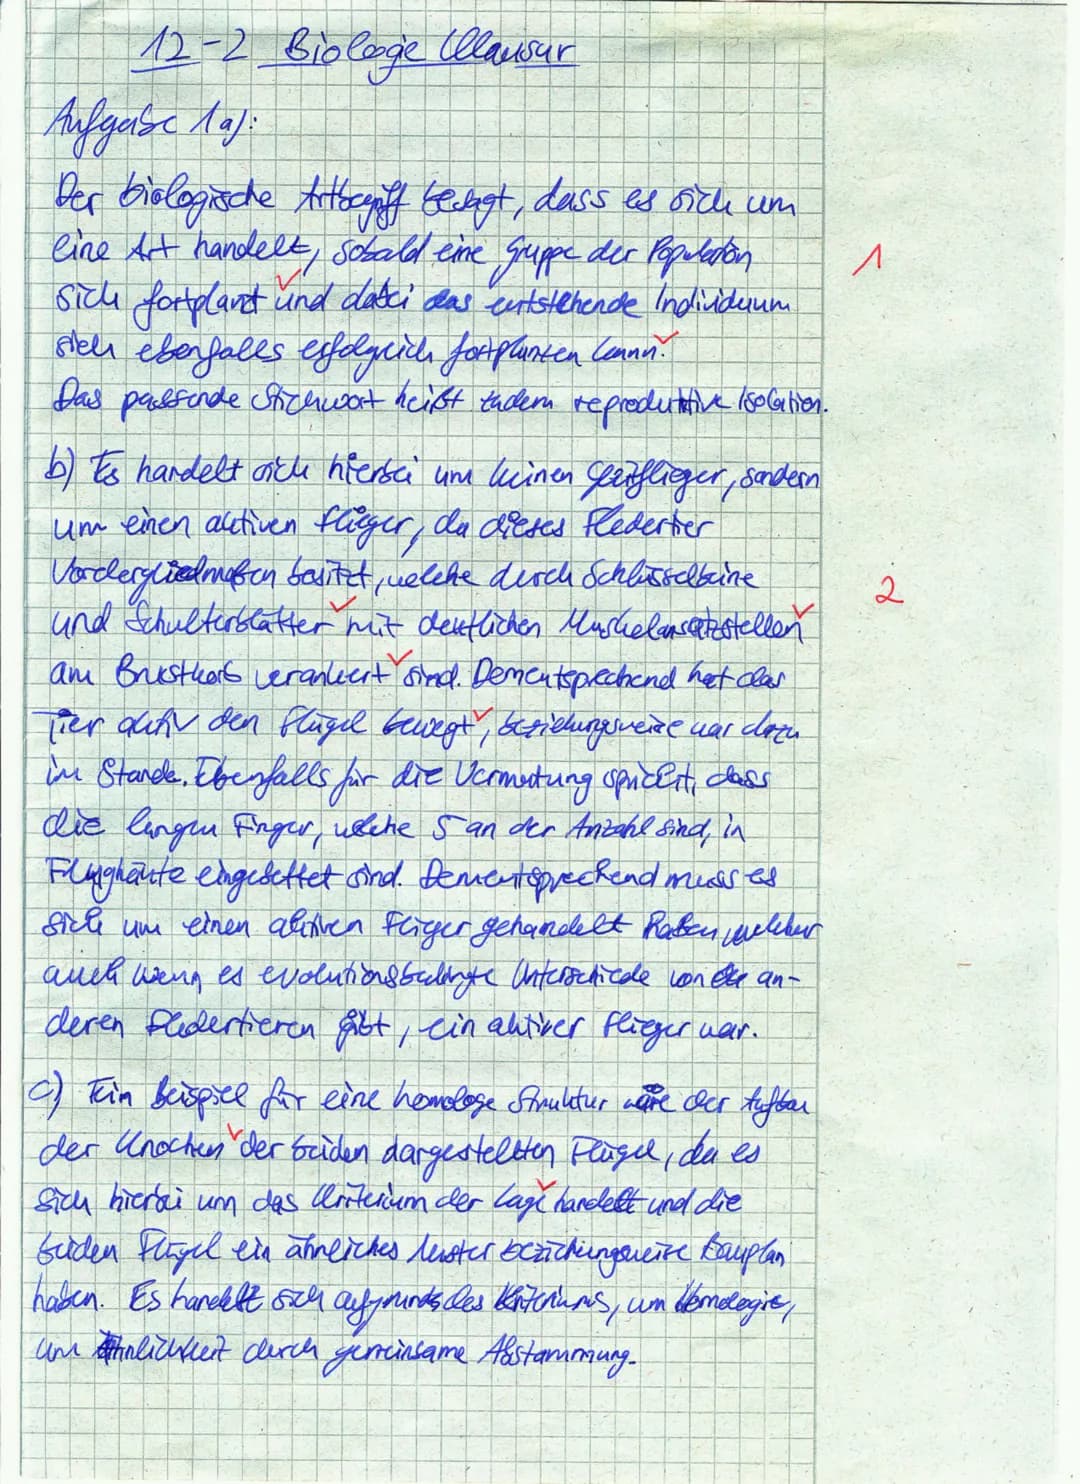 12-2 Biologie Klausur
Aufgabe 1a):
Der biologische Artbegriff besagt, dass es sich um
eine Art handelt, sobald eine Gruppe der Population
1
sich fortplanzt und dabei das entstehende Individuum
sich ebenfalls erfolgreich fortplanzen kann.
Das passende Stichwort heißt zudem reproduktive Isolation.
b) Es handelt sich hierbei um keinen Gleitflieger, sondern
um einen aktiven Flieger, da dieses Fledertier
Vordergliedmaßen besitzt, welche durch Schlüsselbeine
2
und Schulterblätter mit deutlichen Muskelansatzstellen
am Brustkorb verankert sind. Dementsprechend hat das
Tier aktiv den Flügel bewegt, beziehungsweise war dazu
im Stande. Ebenfalls für die Vermutung spricht, dass
die langen Finger, welche 5 an der Anzahl sind, in
Flughäute eingebettet sind. Dementsprechend muss es
sich um einen aktiven Flieger gehandelt haben, welcher
auch wenn es evolutionsbedingte Unterschiede von den an-
deren Fledertieren gibt, ein aktiver Flieger war.
c) Ein Beispiel für eine homologe Struktur wäre der Aufbau
der Knochen der beiden dargestellten Flügel, da es
sich hierbei um das Kriterium der Lage handelt und die
beiden Flügel ein ähnliches Muster beziehungsweise Bauplan
haben. Es handelt sich aufgrund des Kriteriums, um Homologie,
um Ähnlichkeit durch gemeinsame Abstammung.